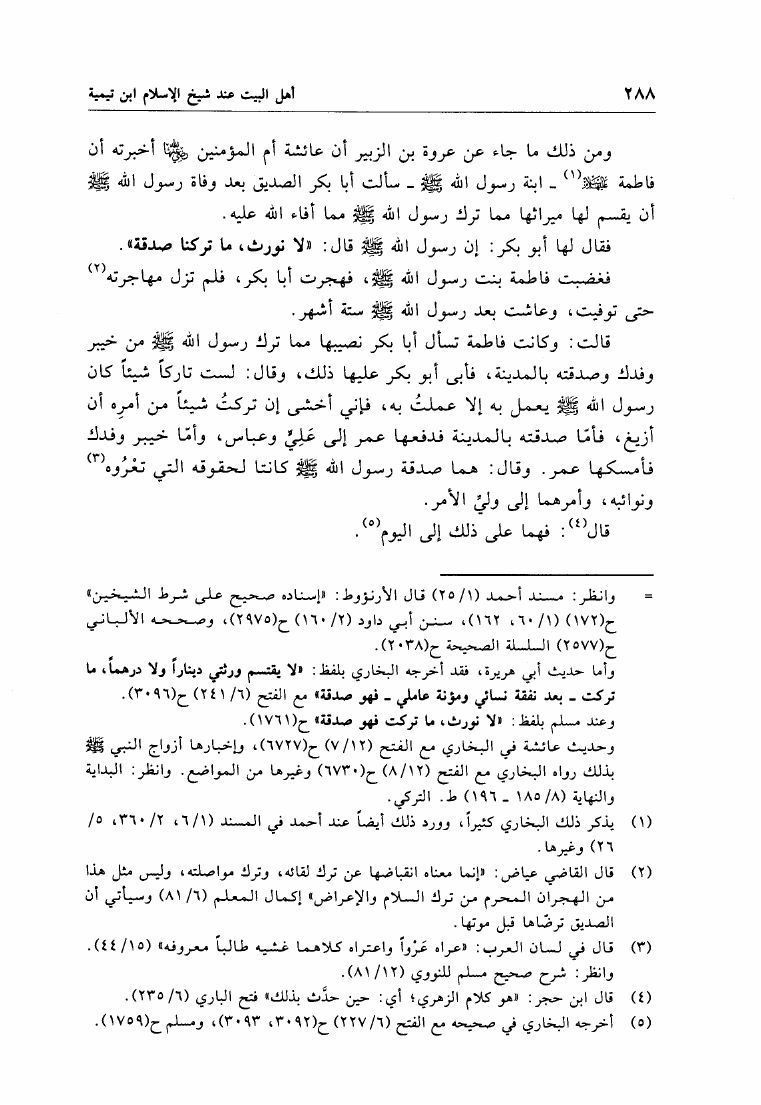 ٢٨٨ أهل البيت عند شيخ الإسلام ابن تيمية
ومن ذلك ما جاء عن عروة بن الزبير أن عائشة أم المؤمنين رضي الله عنها أخبرته أن
فاطمة عليها السلام(١) ـ ابنة رسول الله ﷺ ـ سألت أبا بكر الصديق بعد وفاة رسول الله ﷺ
أن يقسم لها ميراثها مما ترك رسول الله ﷺ مما أفاء الله عليه.
فقال لها أبو بكر: إن رسول الله ﷺ قال: «لا نورث، ما تركنا صدقة».
فغضبت فاطمة بنت رسول الله ﷺ، فهجرت أبا بكر، فلم تزل مهاجرته(٢)
حتى توفيت، وعاشت بعد رسول الله ﷺ ستة أشهر.
قالت: وكانت فاطمة تسأل أبا بكر نصيبها مما ترك رسول الله ﷺ من خيبر
وفدك وصدقته بالمدينة، فأبى أبو بكر عليها ذلك، وقال: لست تاركاً شيئاً كان
رسول الله ﷺ يعمل به إلا عملتُ به، فإني أخشى إن تركتُ شيئاً من أمرِه أن
أزيغ، فأمّا صدقته بالمدينة فدفعها عمر إلى عَلِيٍّ وعباس، وأمّا خيبر وفدك
فأمسكها عمر. وقال: هما صدقة رسول الله ﷺ كانتا لحقوقه التي تعْرُوه(٣)
ونوائبه، وأمرهما إلى وليِّ الأمر.
قال(٤): فهما على ذلك إلى اليوم(٥).
= وانظر: مسند أحمد (١/ ٢٥) قال الأرنؤوط: «إسناده صحيح على شرط الشيخين»
ح(١٧٢) (١/ ٦٠، ١٦٢)، سنن أبي داود (٢/ ١٦٠) ح(٢٩٧٥)، وصححه الألباني
ح(٢٥٧٧) السلسلة الصحيحة ح(٢٠٣٨).
وأما حديث أبي هريرة، فقد أخرجه البخاري بلفظ: «لا يقتسم ورثتي ديناراً ولا درهماً، ما
تركت ـ بعد نفقة نسائي ومؤنة عاملي ـ فهو صدقة» مع الفتح (٦/ ٢٤١) ح(٣٠٩٦).
وعند مسلم بلفظ: «لا نورث، ما تركت فهو صدقة» ح(١٧٦١).
وحديث عائشة في البخاري مع الفتح (١٢/ ٧) ح(٦٧٢٧)، وإخبارها أزواج النبي ﷺ
بذلك رواه البخاري مع الفتح (١٢/ ٨) ح(٦٧٣٠) وغيرها من المواضع. وانظر: البداية
والنهاية (٨/ ١٨٥ ـ ١٩٦) ط. التركي.
(١) يذكر ذلك البخاري كثيراً، وورد ذلك أيضاً عند أحمد في المسند (١/ ٦، ٢/ ٣٦٠، ٥/
٢٦) وغيرها.
(٢) قال القاضي عياض: «إنما معناه انقباضها عن ترك لقائه، وترك مواصلته، وليس مثل هذا
من الهجران المحرم من ترك السلام والإعراض» إكمال المعلم (٦/ ٨١) وسيأتي أن
الصديق ترضّاها قبل موتها.
(٣) قال في لسان العرب: «عراه عَرْواً واعتراه كلاهما غشيه طالباً معروفه» (١٥/ ٤٤).
وانظر: شرح صحيح مسلم للنووي (١٢/ ٨١).
(٤) قال ابن حجر: «هو كلام الزهري؛ أي: حين حدَّث بذلك» فتح الباري (٦/ ٢٣٥).
(٥) أخرجه البخاري في صحيحه مع الفتح (٦/ ٢٢٧) ح(٣٠٩٢، ٣٠٩٣)، ومسلم ح(١٧٥٩).